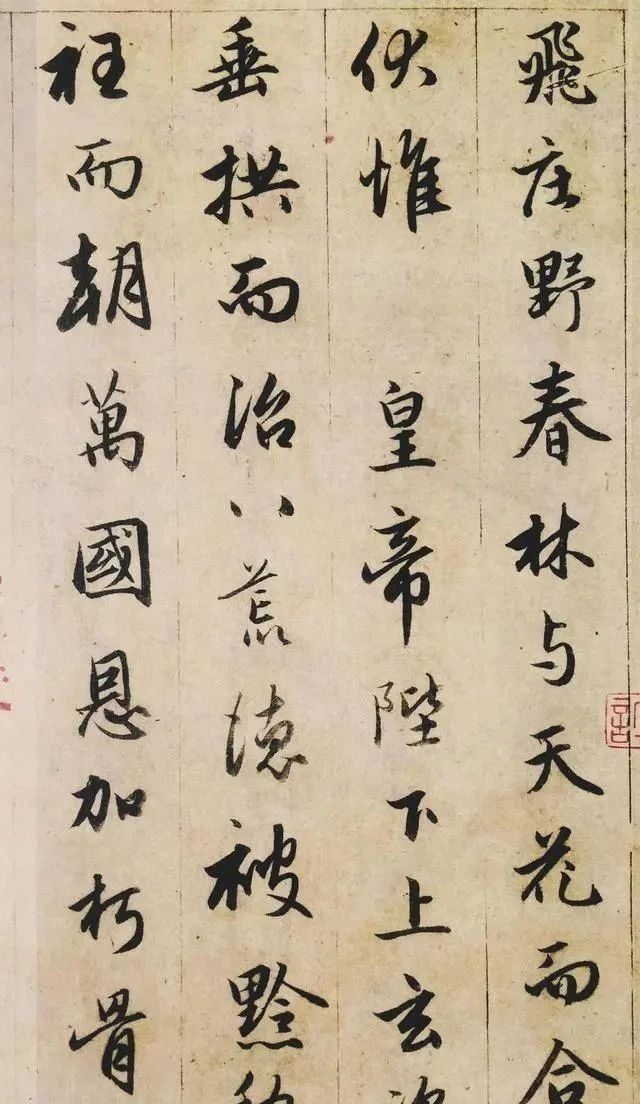 飛庄野春林与天花而合
伏惟 皇帝陛下上玄
垂拱而治八荒德被黔
衽而朝萬國恩加朽骨